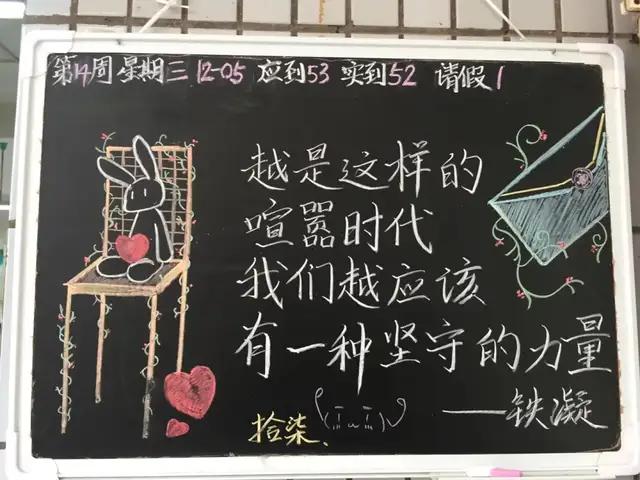 第14周 星期三 12-05 应到53 实到52 请假1
越是这样的
喧嚣时代
我们越应该
有一种坚守的力量
——铁凝
拾柒、